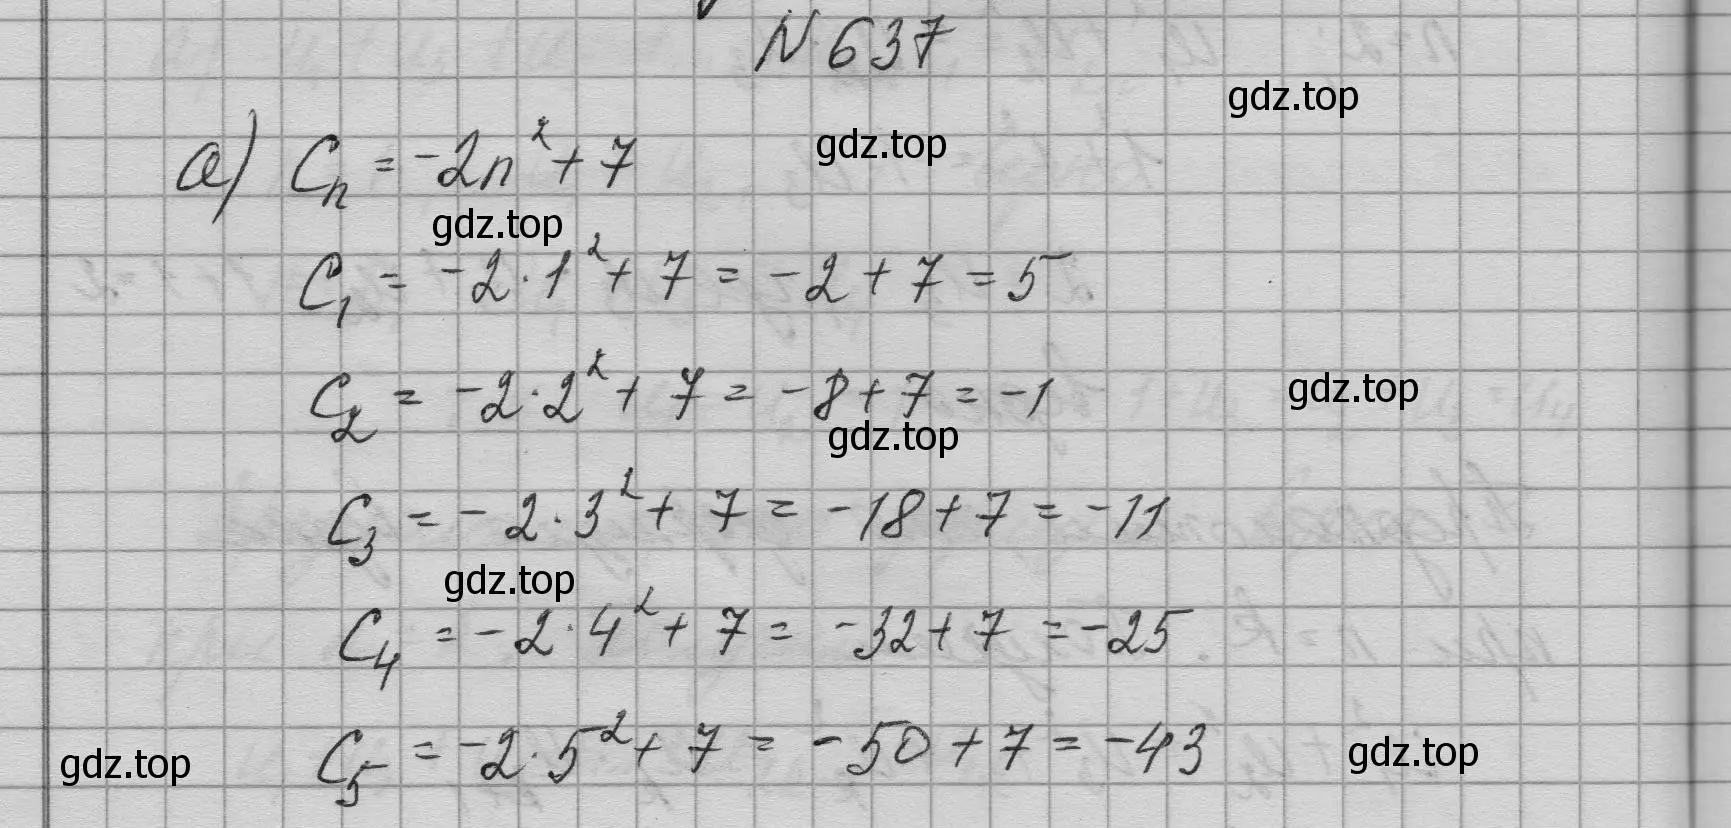 N 637
gdz.top
а) Cₙ = -2n² + 7
gdz.top
gdz.top
C₁ = -2·1² + 7 = -2 + 7 = 5
C₂ = -2·2² + 7 = -8 + 7 = -1
gdz.top
gdz.top
C₃ = -2·3² + 7 = -18 + 7 = -11
gdz.top
C₄ = -2·4² + 7 = -32 + 7 = -25
C₅ = -2·5² + 7 = -50 + 7 = -43
gdz.top
gdz.top